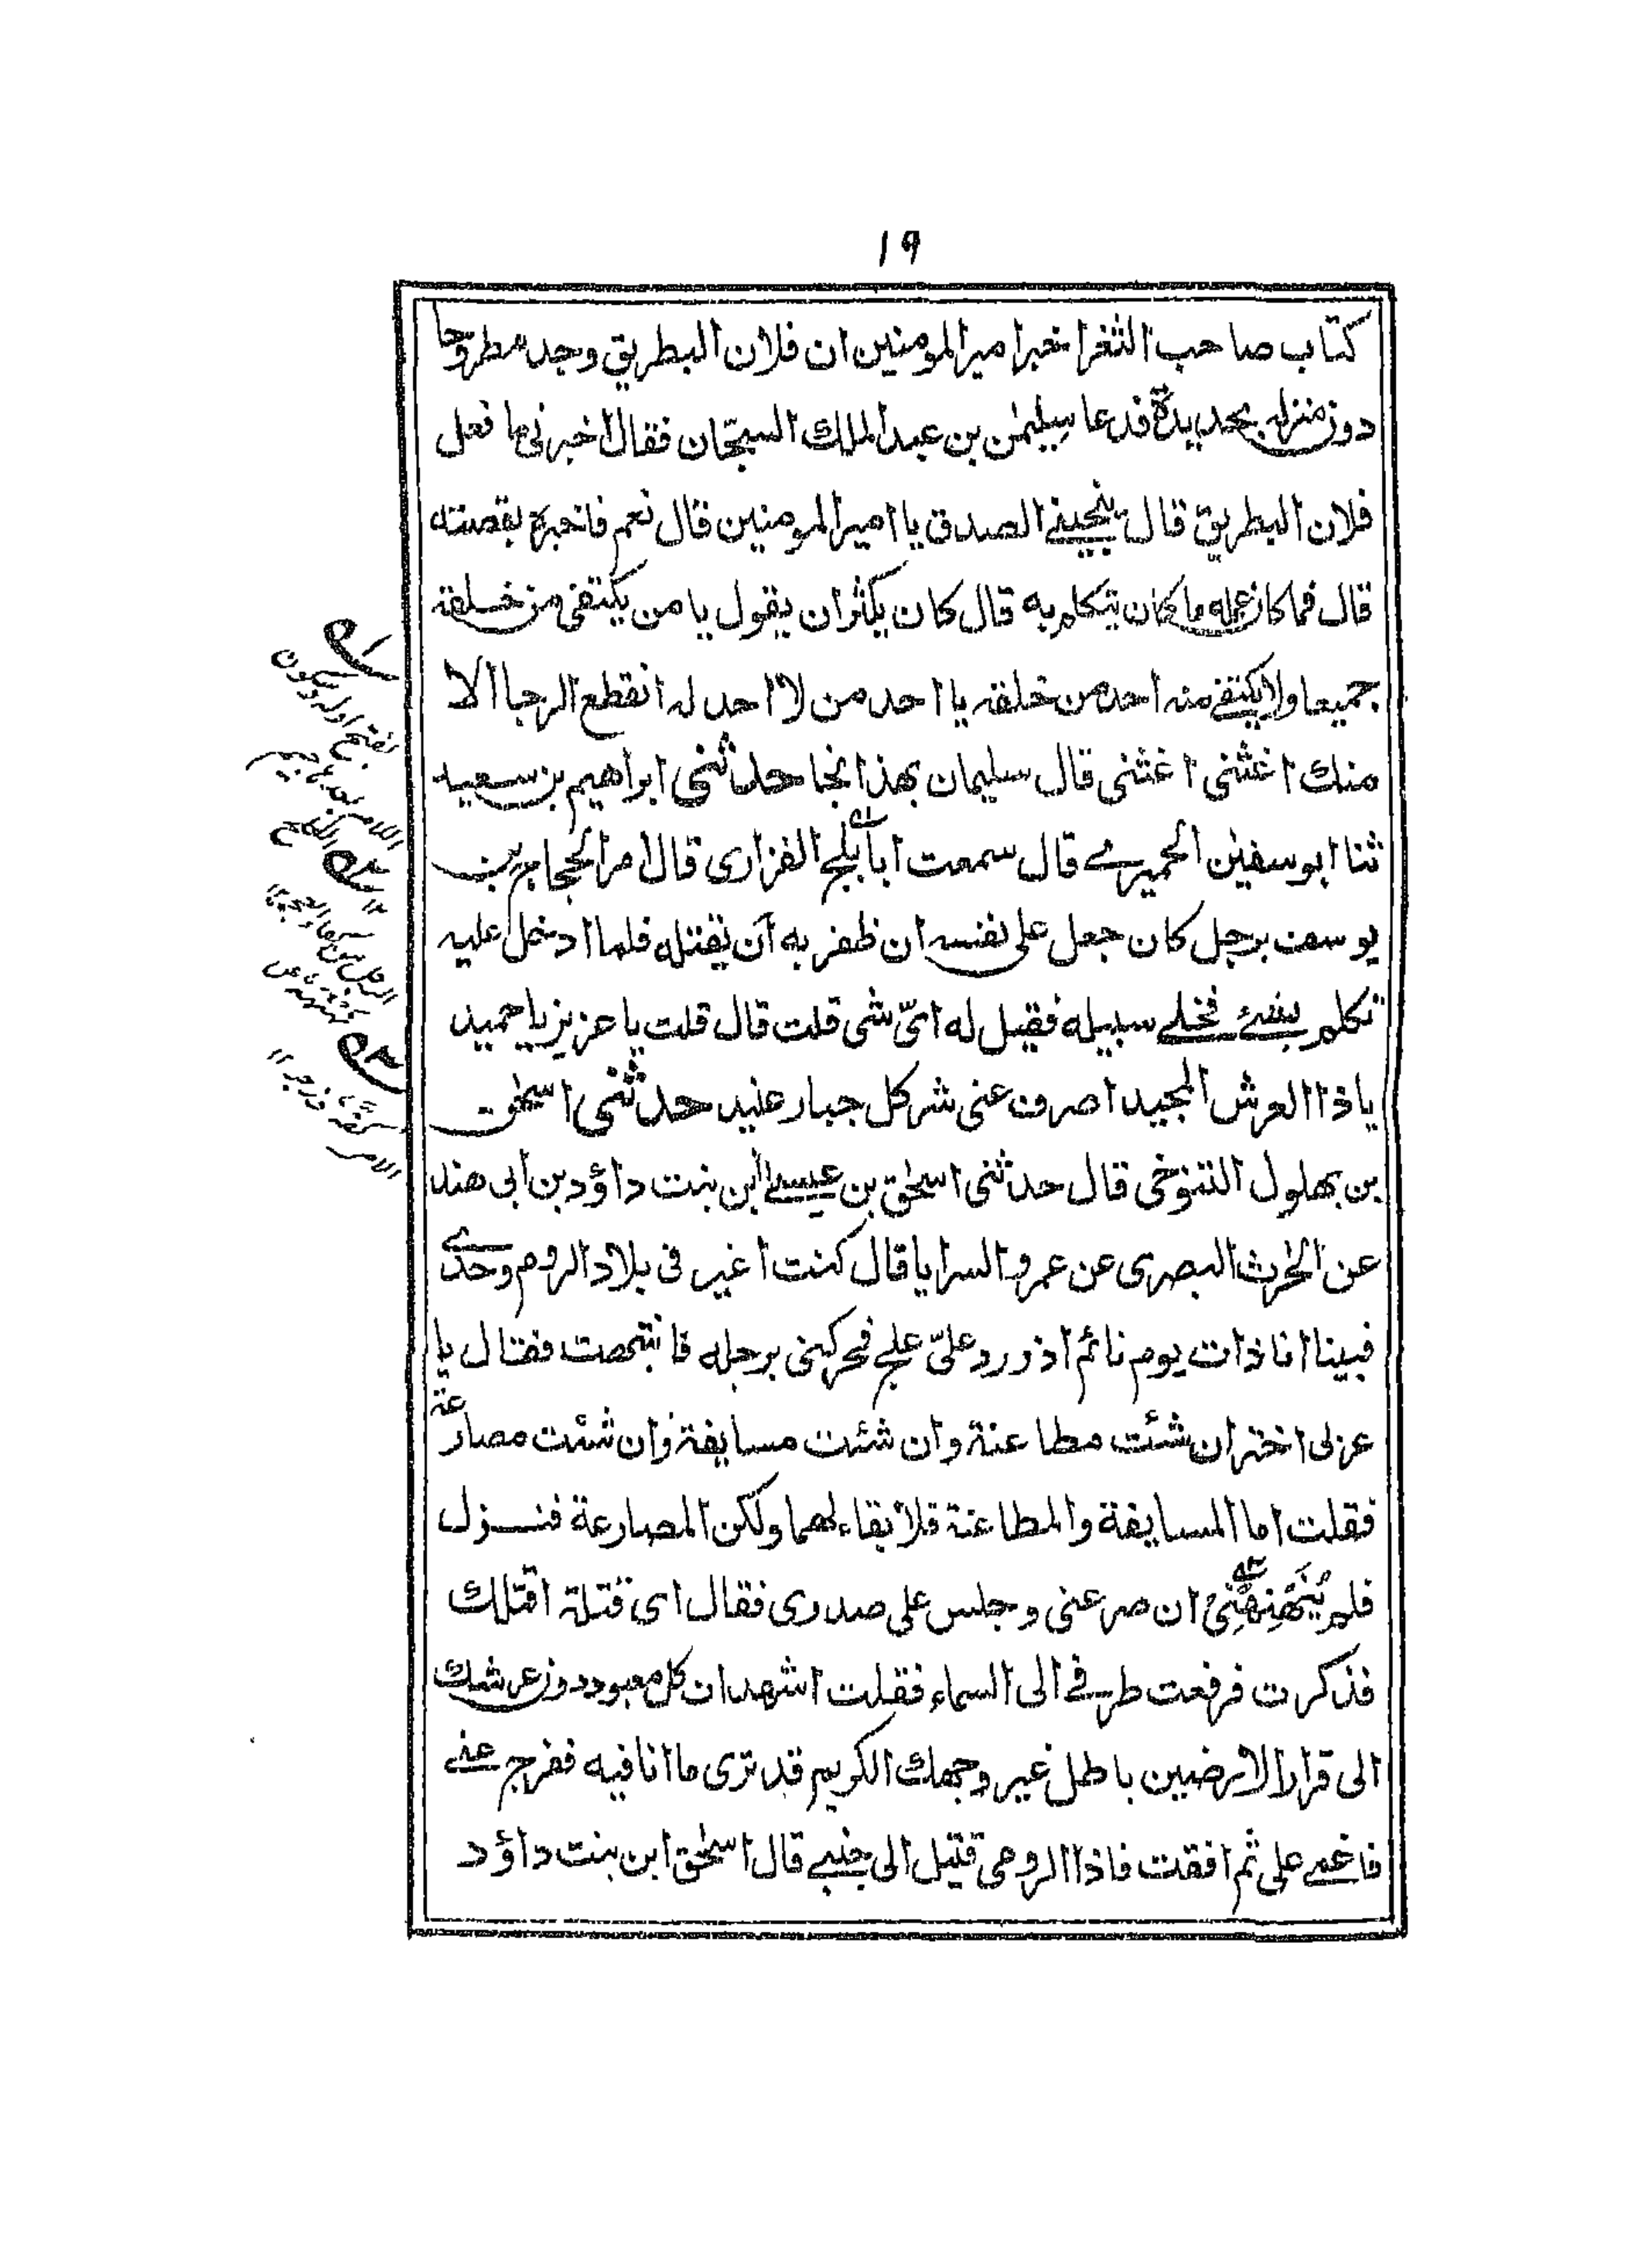 ١٩
كتاب صاحب الثغر اخبر امير المومنين ان فلان البطريق وجد مطروحا
دون منزله بحديدة فدعا سليمٰن بن عبد الملك السجّان فقال اخبرنى ما فعل
فلان البطريق قال ينجينے الصدق يا امير المومنين قال نعم فاخبره بقصته
قال فما كان عمله ما كان يتكلم به قال كان يكثر ان يقول يا من يكتفى من خلقه
جميعا ولا يكتفے منه احد من خلقه يا احد من لا احد له انقطع الرجا الا
منك اغثنى اغثنى قال سليمان بهذا نجا حدثنى ابراهيم بن سعيد
ثنا ابو سفيٰن الحميرے قال سمعت ابا بلج الفزارى قال امر الحجاج بن
يوسف برجل كان جعل على نفسه ان ظفر به ان يقتله فلما ادخل عليه
تكلم بشئ فخلے سبيله فقيل له اىّ شى قلت قال قلت يا عزيز يا حميد
يا ذا العرش المجيد اصرف عنى شر كل جبار عنيد حدثنى اسحٰق
بن بهلول التنوخى قال حدثنى اسحٰق بن عيسے ابن بنت داؤد بن ابى هند
عن الحٰرث البصرى عن عمرو السرايا قال كنت اغير فى بلاد الروم وحدے
فبينا انا ذات يوم نائم اذ ورد علىّ علج فحركنى برجله فانتبهت فقال يا
عربى اختر ان شئت مطاعنة وان شئت مسايفة وان شئت مصارعة
فقلت اما المسايفة والمطاعنة فلا بقاء لهما ولكن المصارعة فنزل
فلم يُنَهْنِهْنِىْ ان صرعنى وجلس على صدرى فقال اى قتلة اقتلك
فذكرت فرفعت طرفے الى السماء فقلت اشهد ان كل معبود دون عرشك
الى قرار الارضين باطل غير وجهك الكريم قد ترى ما انا فيه ففرج عنے
فاغمے على ثم افقت فاذا الرومى قتيل الى جنبے قال اسحٰق ابن بنت داؤد
بفتح اوله وسكون
اللام بعدها جيم